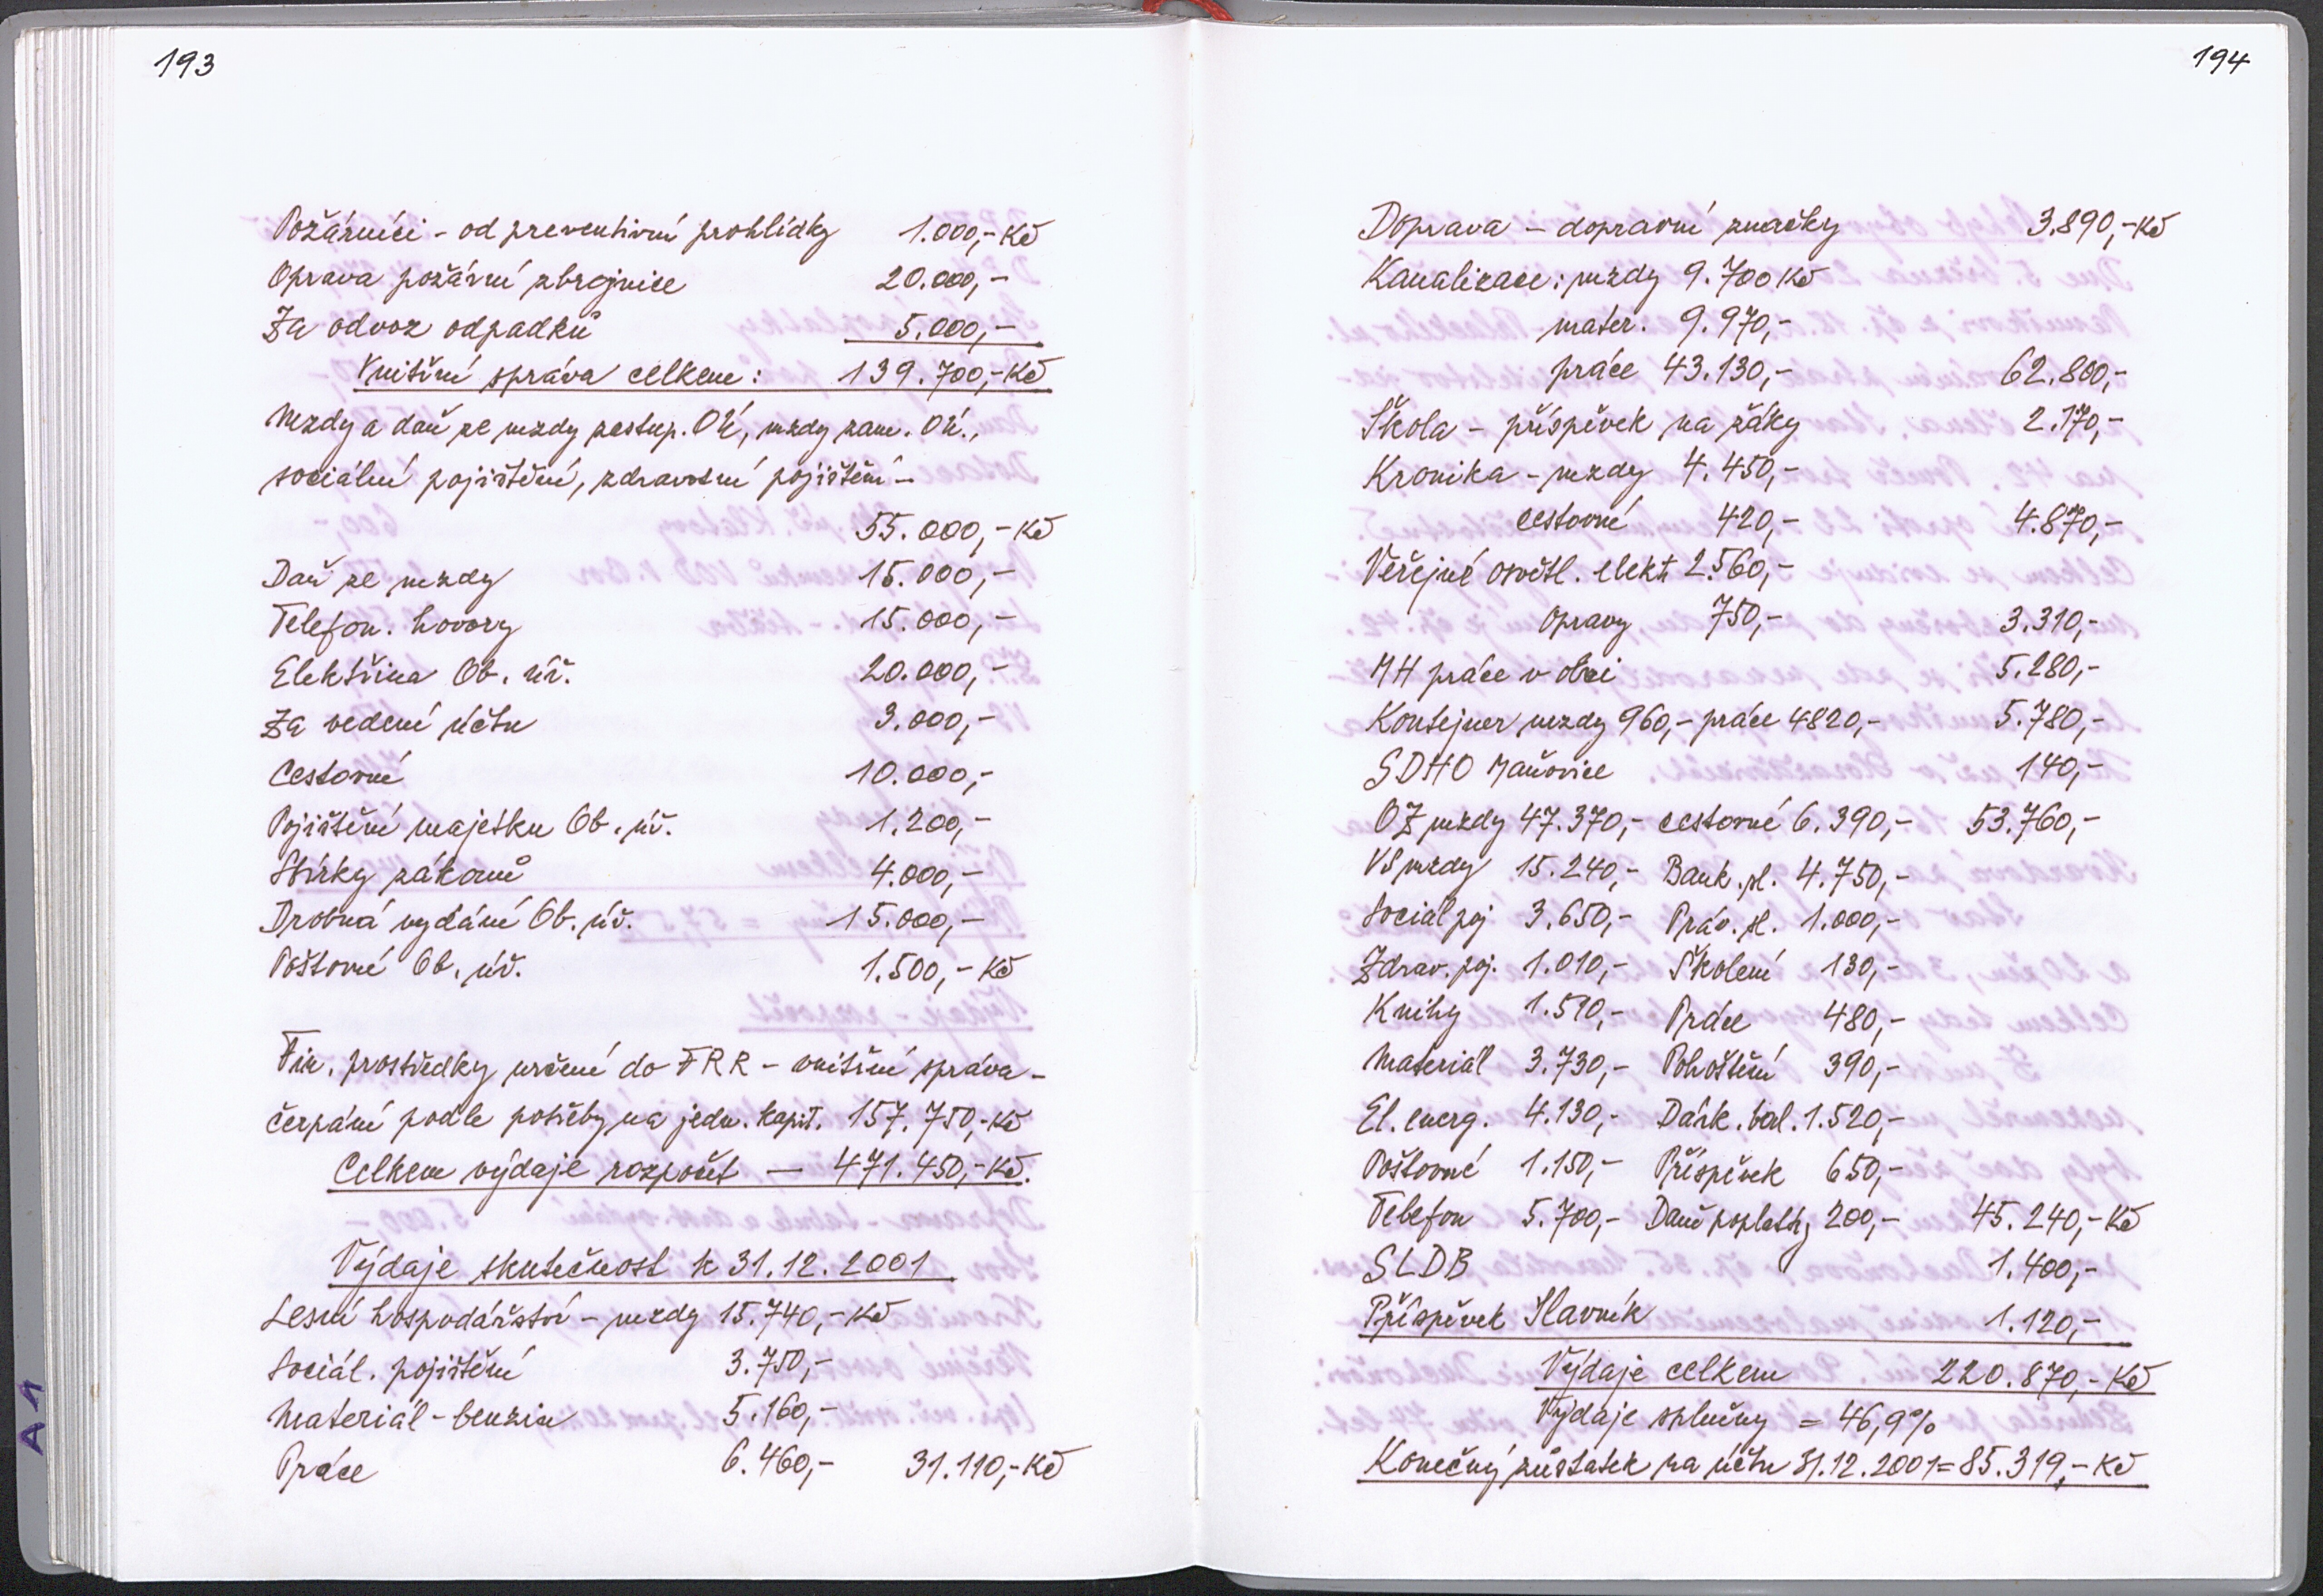 193
Požárníci - od preventivní prohlídky 1.000,- Kč
Oprava požární zbrojnice 20.000,-
Za odvoz odpadků 5.000,-
Vnitřní správa celkem: 139.700,- Kč
Mzdy a daň ze mzdy zastup. OÚ, mzdy zam. OÚ.,
sociální pojištění, zdravotní pojištění -
55.000,- Kč
Daň ze mzdy 15.000,-
Telefon. hovory 15.000,-
Elektřina Ob. úř. 20.000,-
Za vedení účtu 3.000,-
Cestovné 10.000,-
Pojištění majetku Ob. úř. 1.200,-
Sbírky zákonů 4.000,-
Drobná vydání Ob. úř. 15.000,-
Poštovné Ob. úř. 1.500,- Kč
Fin. prostředky určené do FRR - vnitřní správa -
čerpání podle potřeby na jedn. kapit. 157.750,- Kč
Celkem výdaje rozpočet — 471.450,- Kč.
Výdaje skutečnost k 31.12.2001
Lesní hospodářství - mzdy 15.740,- Kč
Sociál. pojištění 3.750,-
Materiál - benzin 5.160,-
Práce 6.460,- 31.110,- Kč
A1
194
Doprava - dopravní značky 3.890,- Kč
Kanalizace: mzdy 9.700 Kč
mater. 9.970,-
práce 43.130,- 62.800,-
Škola - příspěvek na žáky 2.170,-
Kronika - mzdy 4.450,-
cestovné 420,- 4.870,-
Veřejné osvětl. elekt 2.560,-
Opravy 750,- 3.310,-
MH práce v obci 5.280,-
Kontejner mzdy 960,- práce 4820,- 5.780,-
SDHO Maňovice 140,-
OZ mzdy 47.370,- cestovné 6.390,- 53.760,-
VS mzdy 15.240,- Bank. pl. 4.750,-
Sociál poj 3.650,- Práv. sl. 1.000,-
Zdrav. poj. 1.010,- Školení 130,-
Knihy 1.510,- Práce 480,-
Materiál 3.730,- Pohoštění 390,-
El. energ. 4.130,- Dárk. bal. 1.520,-
Poštovné 1.150,- Příspěvek 650,-
Telefon 5.700,- Daně poplatky 200,- 45.240,- Kč
SLDB 1.400,-
Příspěvek Slavník 1.120,-
Výdaje celkem 220.870,- Kč
Výdaje splněny = 46,9%
Konečný zůstatek na účtu 31.12.2001 = 85.319,- Kč